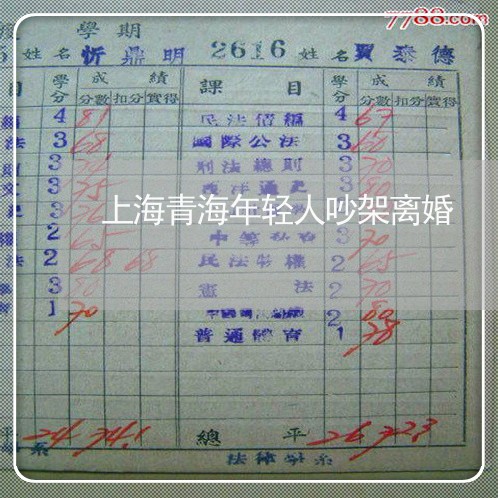 7788.com
學期
姓名 忻鼎明 2616 姓名 賈泰德
目 學分 成績 課目 學分 成績
分數 扣分 實得 分數 扣分 實得
4 81 民法債編 4 67
法 3 68 國際公法 3 60
3 刑法總則 3 70
3 75 西洋通史 3 80
上海青海年轻人吵架离婚
2 65 3 70
法 2 68 68 民法物權 2 65
3 80 憲法 2 70
1 70 2 80
普通體育 1 78
平 24 74.1 總平 26 72.3
系 法律學系